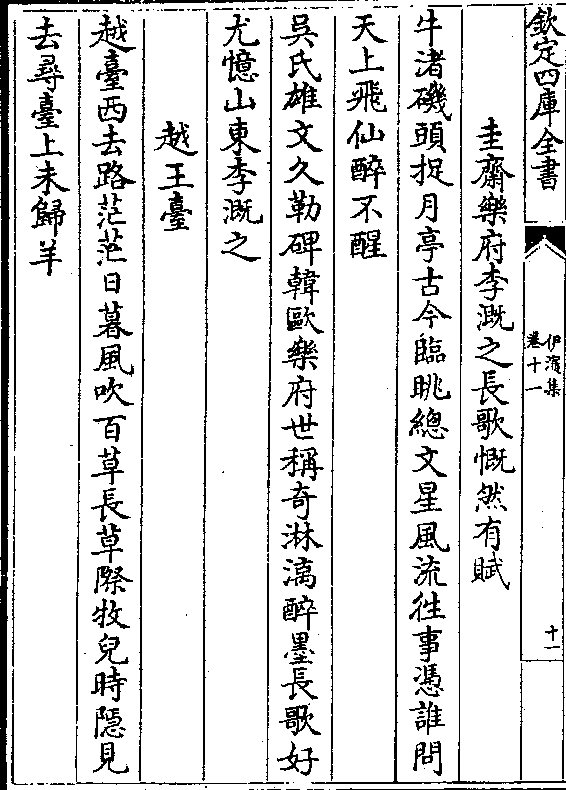 欽定四庫全書
伊濱集
卷十一
十一
圭齋樂府李溉之長歌慨然有賦
牛渚磯頭捉月亭古今臨眺總文星風流徃事憑誰問
天上飛仙醉不醒
吳氏雄文久勒碑韓歐樂府世稱奇淋漓醉墨長歌好
尤憶山東李溉之
越王臺
越臺西去路茫茫日暮風吹百草長草際牧兒時隱見
去尋臺上未歸羊